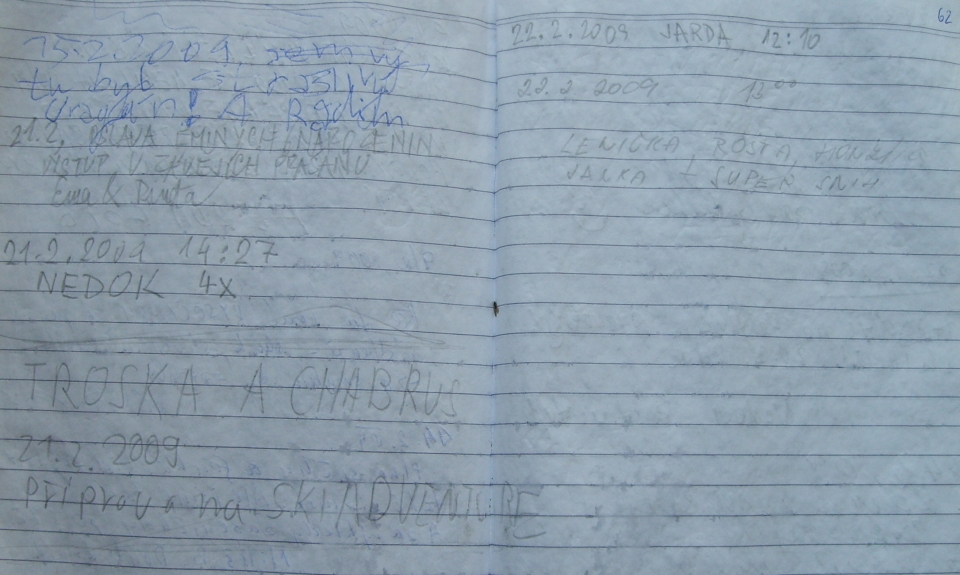 15.2.2009
tu byl
Uragán! A Radim
21.2. OSLAVA EMINÝCH NAROZENIN
VÝSTUP V
Ema &
21.2.2009 14:27
NEDOK 4x
TROSKA A CHABRUS
21.2.2009
Příprava na SKI ADVENTURE
62
22.2.2009 JARDA, 12:10
22.2 2009 12⁰⁰
LENIČKA, ROSTA,
JARKA + SUPER SNIH